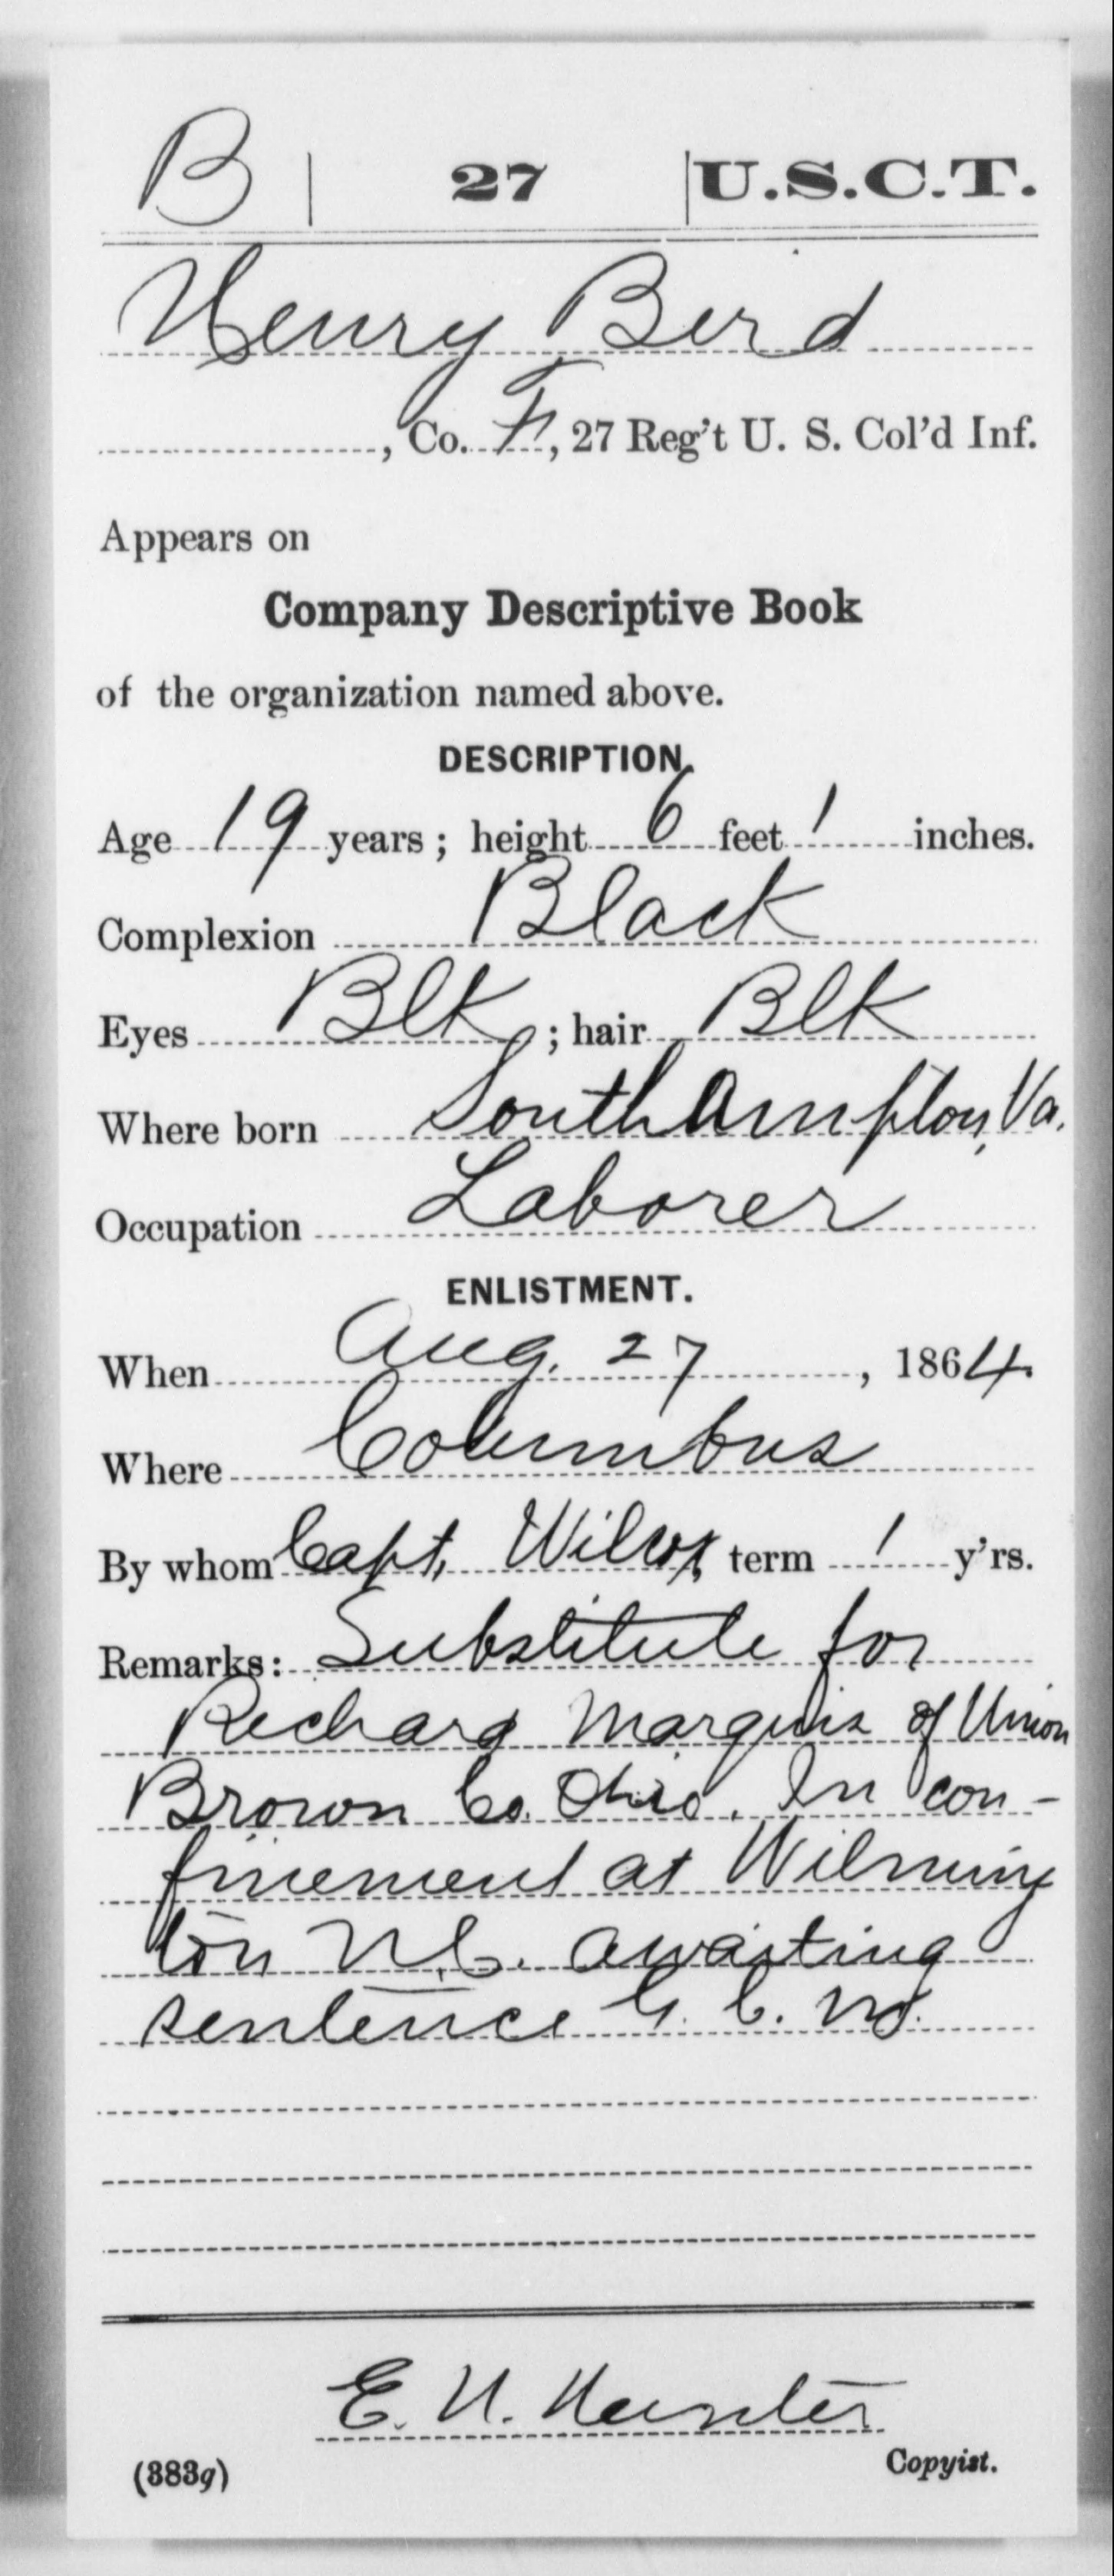 B | 27 | U.S.C.T.
Henry Bird
, Co. F, 27 Reg't U. S. Col'd Inf.
Appears on
Company Descriptive Book
of the organization named above.
DESCRIPTION.
Age 19 years; height 6 feet 1 inches.
Complexion Black
Eyes Blk; hair Blk
Where born Southampton, Va.
Occupation Laborer
ENLISTMENT.
When Aug. 27, 1864.
Where Columbus
By whom Capt. Wilcox, term 1 y'rs.
Remarks: Substitute for
Richard Marquis of Union
Brown Co. Ohio. In con-
finement at Wilming
ton N.C. awaiting
sentence G. C. M.
E. H.
(383g)
Copyist.